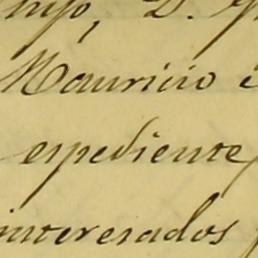 hijo, D.
Mauricio é
espediente
interesados